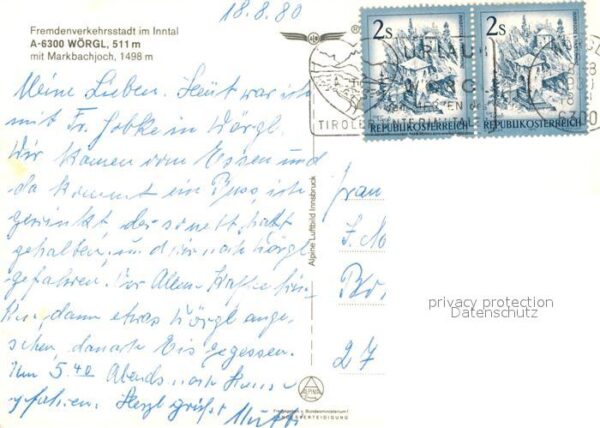 18.8.80
Fremdenverkehrsstadt im Inntal
A-6300 WÖRGL, 511 m
mit Markbachjoch, 1498 m
Meine Lieben. Heut war ich
mit Fr. in Wörgl.
Wir kamen vom Essen und
da kommt ein Bus, ich
gewinkt, der so nett, hat
gehalten, und wir nach Wörgl
gefahren. Vor Allem Kaffee
dann etwas Wörgl ange-
sehen, danach Eis gegessen.
Um 5.40 Abends nach Hause
gefahren. Herzl. grüßt Mutti
Alpine Luftbild Innsbruck
2s
2s
REPUBLIK ÖSTERREICH
REPUBLIK ÖSTERREICH
URLAUB
WÖRGL
TIROLER UNTERINNTAL
Frau
27
privacy protection
Datenschutz
ALPINE
Freigegeben v. Bundesministerium f.
LANDESVERTEIDIGUNG